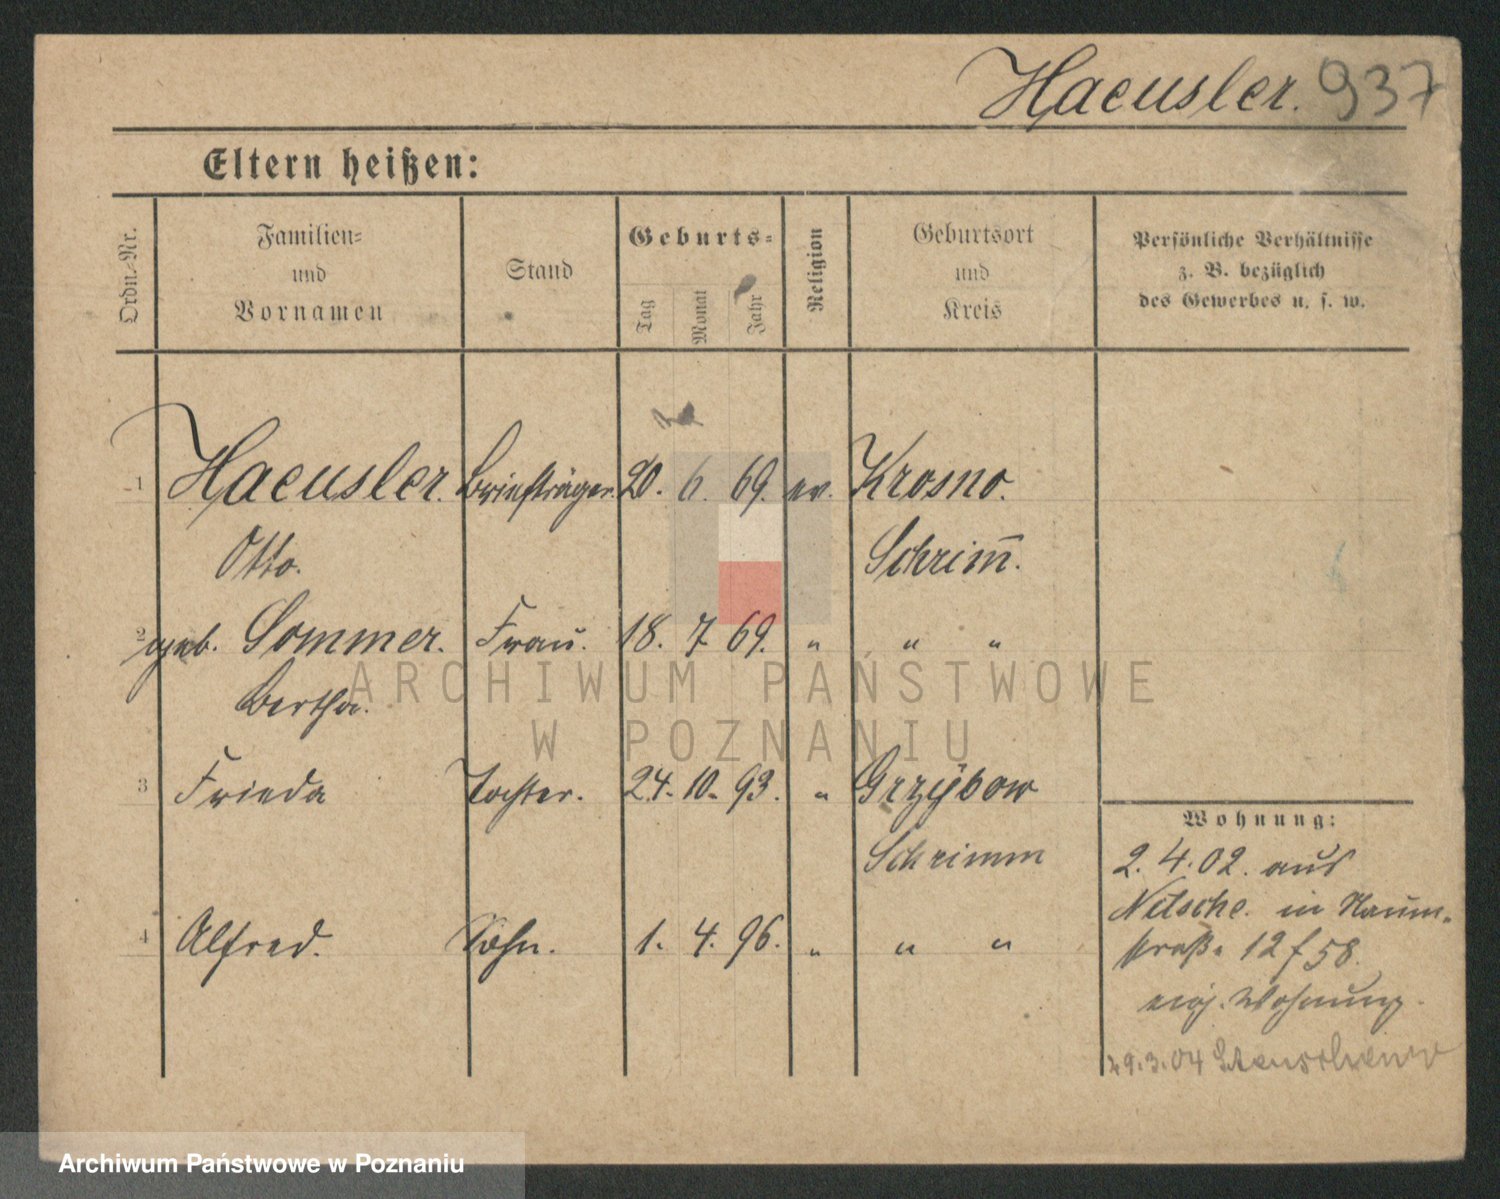 Haeusler. 937
Eltern heißen:
Ordn.-Nr.
Familien-
und
Vornamen
Stand
Geburts-
Tag
Monat
Jahr
Religion
Geburtsort
und
Kreis
Persönliche Verhältnisse
z. B. bezüglich
des Gewerbes u. s. w.
1 Haeusler. Briefträger. 20. 6. 69. ev. Krosno.
Otto. Schrim̄.
2 geb. Sommer. Frau. 18. 7 69. " " "
Bertha.
ARCHIWUM PAŃSTWOWE
W POZNANIU
3 Frieda Tochter. 24. 10. 93. " Grzybow
Schrimm
4 Alfred. Sohn. 1. 4. 96. " " "
Wohnung:
2. 4. 02. aus
Netsche. in Naum-
straße 12 f 58.
eig. Wohnung.
29.3.04
Archiwum Państwowe w Poznaniu